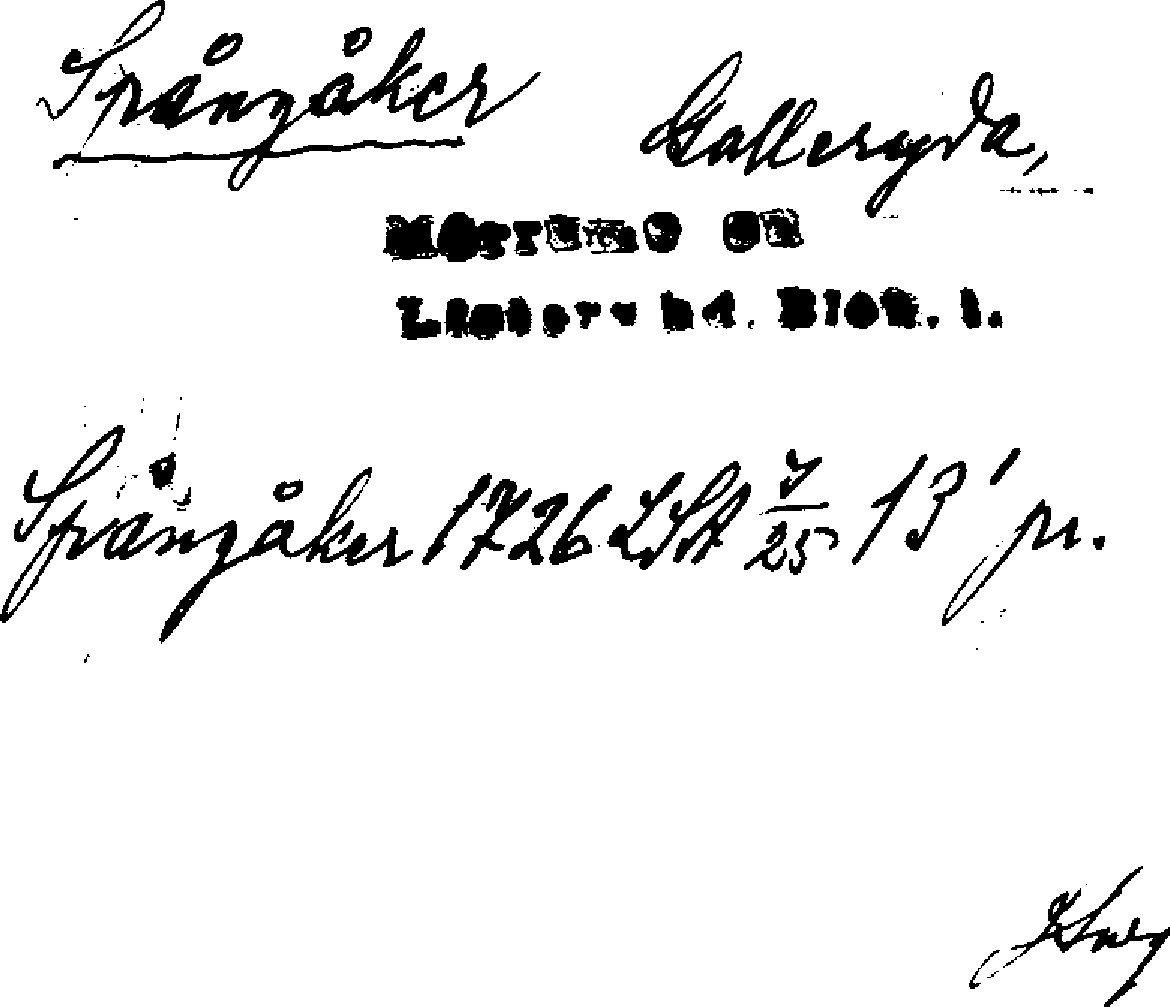 Spångåker Galleryda,
Mörrums sn
Listers hd. Blek. l.
Spångåker 1726 LSA 7/25 13' pr.